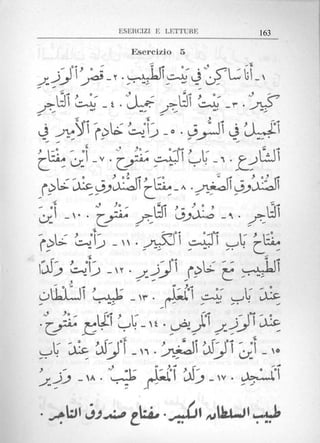 ESERCIZI E LETTURE 163
Esercizio 5
١- أَنَا سَاكِنٌ فِي بَيْتِ ٱلطَّبِيبِ. ٢- قَصْرُ ٱلْوَزِيرِ
كَبِيرٌ. ٣- بَيْتُ ٱلتَّاجِرِ جَمِيلٌ. ٤- بَيْتُ ٱلتَّاجِرِ
ٱلْجَمِيلُ فِي ٱلسُّوقِ. ٥- رَأَيْتُ خَادِمَ ٱلْأَمِيرِ فِي
ٱلشَّارِعِ. ٦- بَابُ ٱلْبَيْتِ مَفْتُوحٌ. ٧- أَيْنَ مِفْتَاحُ
ٱلصُّنْدُوقِ ٱلصَّغِيرِ. ٨- مِفْتَاحُ ٱلصُّنْدُوقِ عِنْدَ خَادِمِ
ٱلتَّاجِرِ. ٩- صُنْدُوقُ ٱلتَّاجِرِ مَفْتُوحٌ. ١٠- أَيْنَ
مِفْتَاحُ بَابِ ٱلْبَيْتِ ٱلْكَبِيرِ. ١١- رَأَيْتُ خَادِمَ
ٱلطَّبِيبِ مَعَ خَادِمِ ٱلْوَزِيرِ. ١٢- رَأَيْتُ وَلَدًا
عِنْدَ بَابِ بَيْتِ ٱلْمُعَلِّمِ. ١٣- طَبِيبُ ٱلسُّلْطَانِ
عِنْدَ ٱلْوَزِيرِ ٱلْمَرِيضِ. ١٤- بَابُ ٱلْجَامِعِ مَفْتُوحٌ.
١٥- أَيْنَ ٱلْوَلَدُ ٱلصَّغِيرُ. ١٦- ٱلْوَلَدُ عِنْدَ بَابِ
ٱلْمَسْجِدِ. ١٧- وَلَدُ ٱلْمُعَلِّمِ طَيِّبٌ. ١٨- وَزِيرُ
طبيب السلطان الكبير. مفتاح صندوق التاجر.